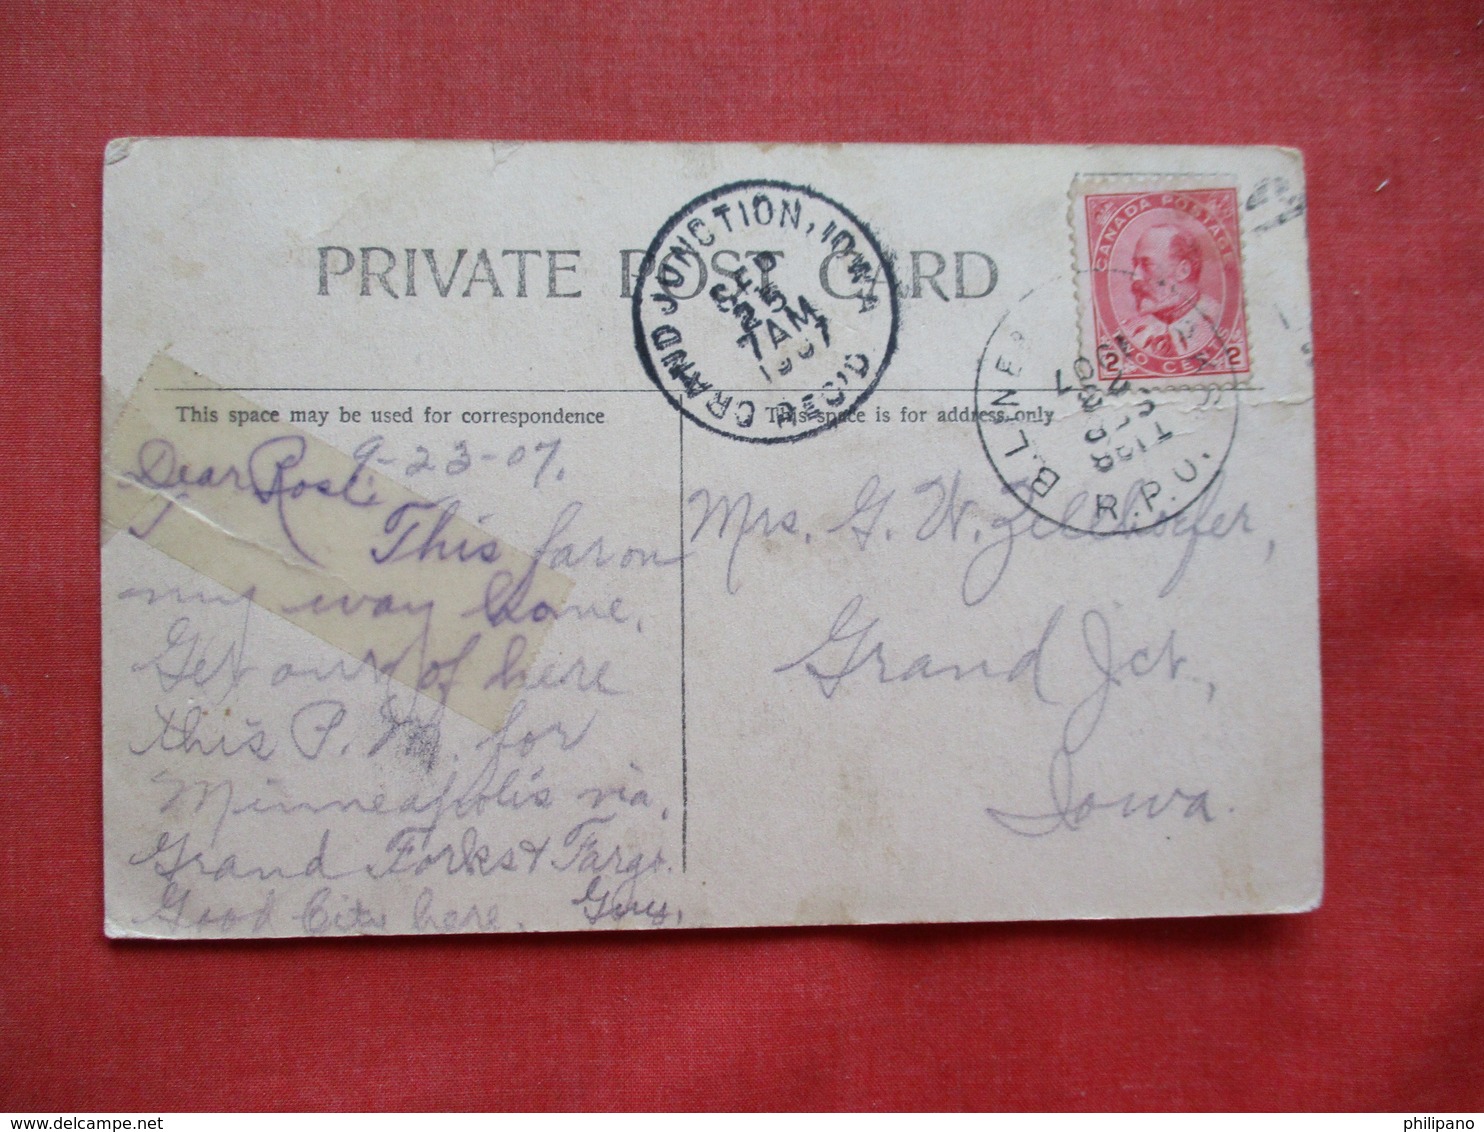 PRIVATE POST CARD
GRAND JUNCTION, IOWA
SEP
25
7AM
1907
REC'D
CANADA POSTAGE
2 CENTS 2
B. LINE
R.P.O.
This space may be used for correspondence
This space is for address only
9-23-07.
Dear Rosa:
This far on
my way home.
Get out of here
this P.M. for
Minneapolis via,
Grand Forks & Fargo.
Good City here. Guy.
Mrs. G. W.
Grand Jct.,
Iowa.
philipano